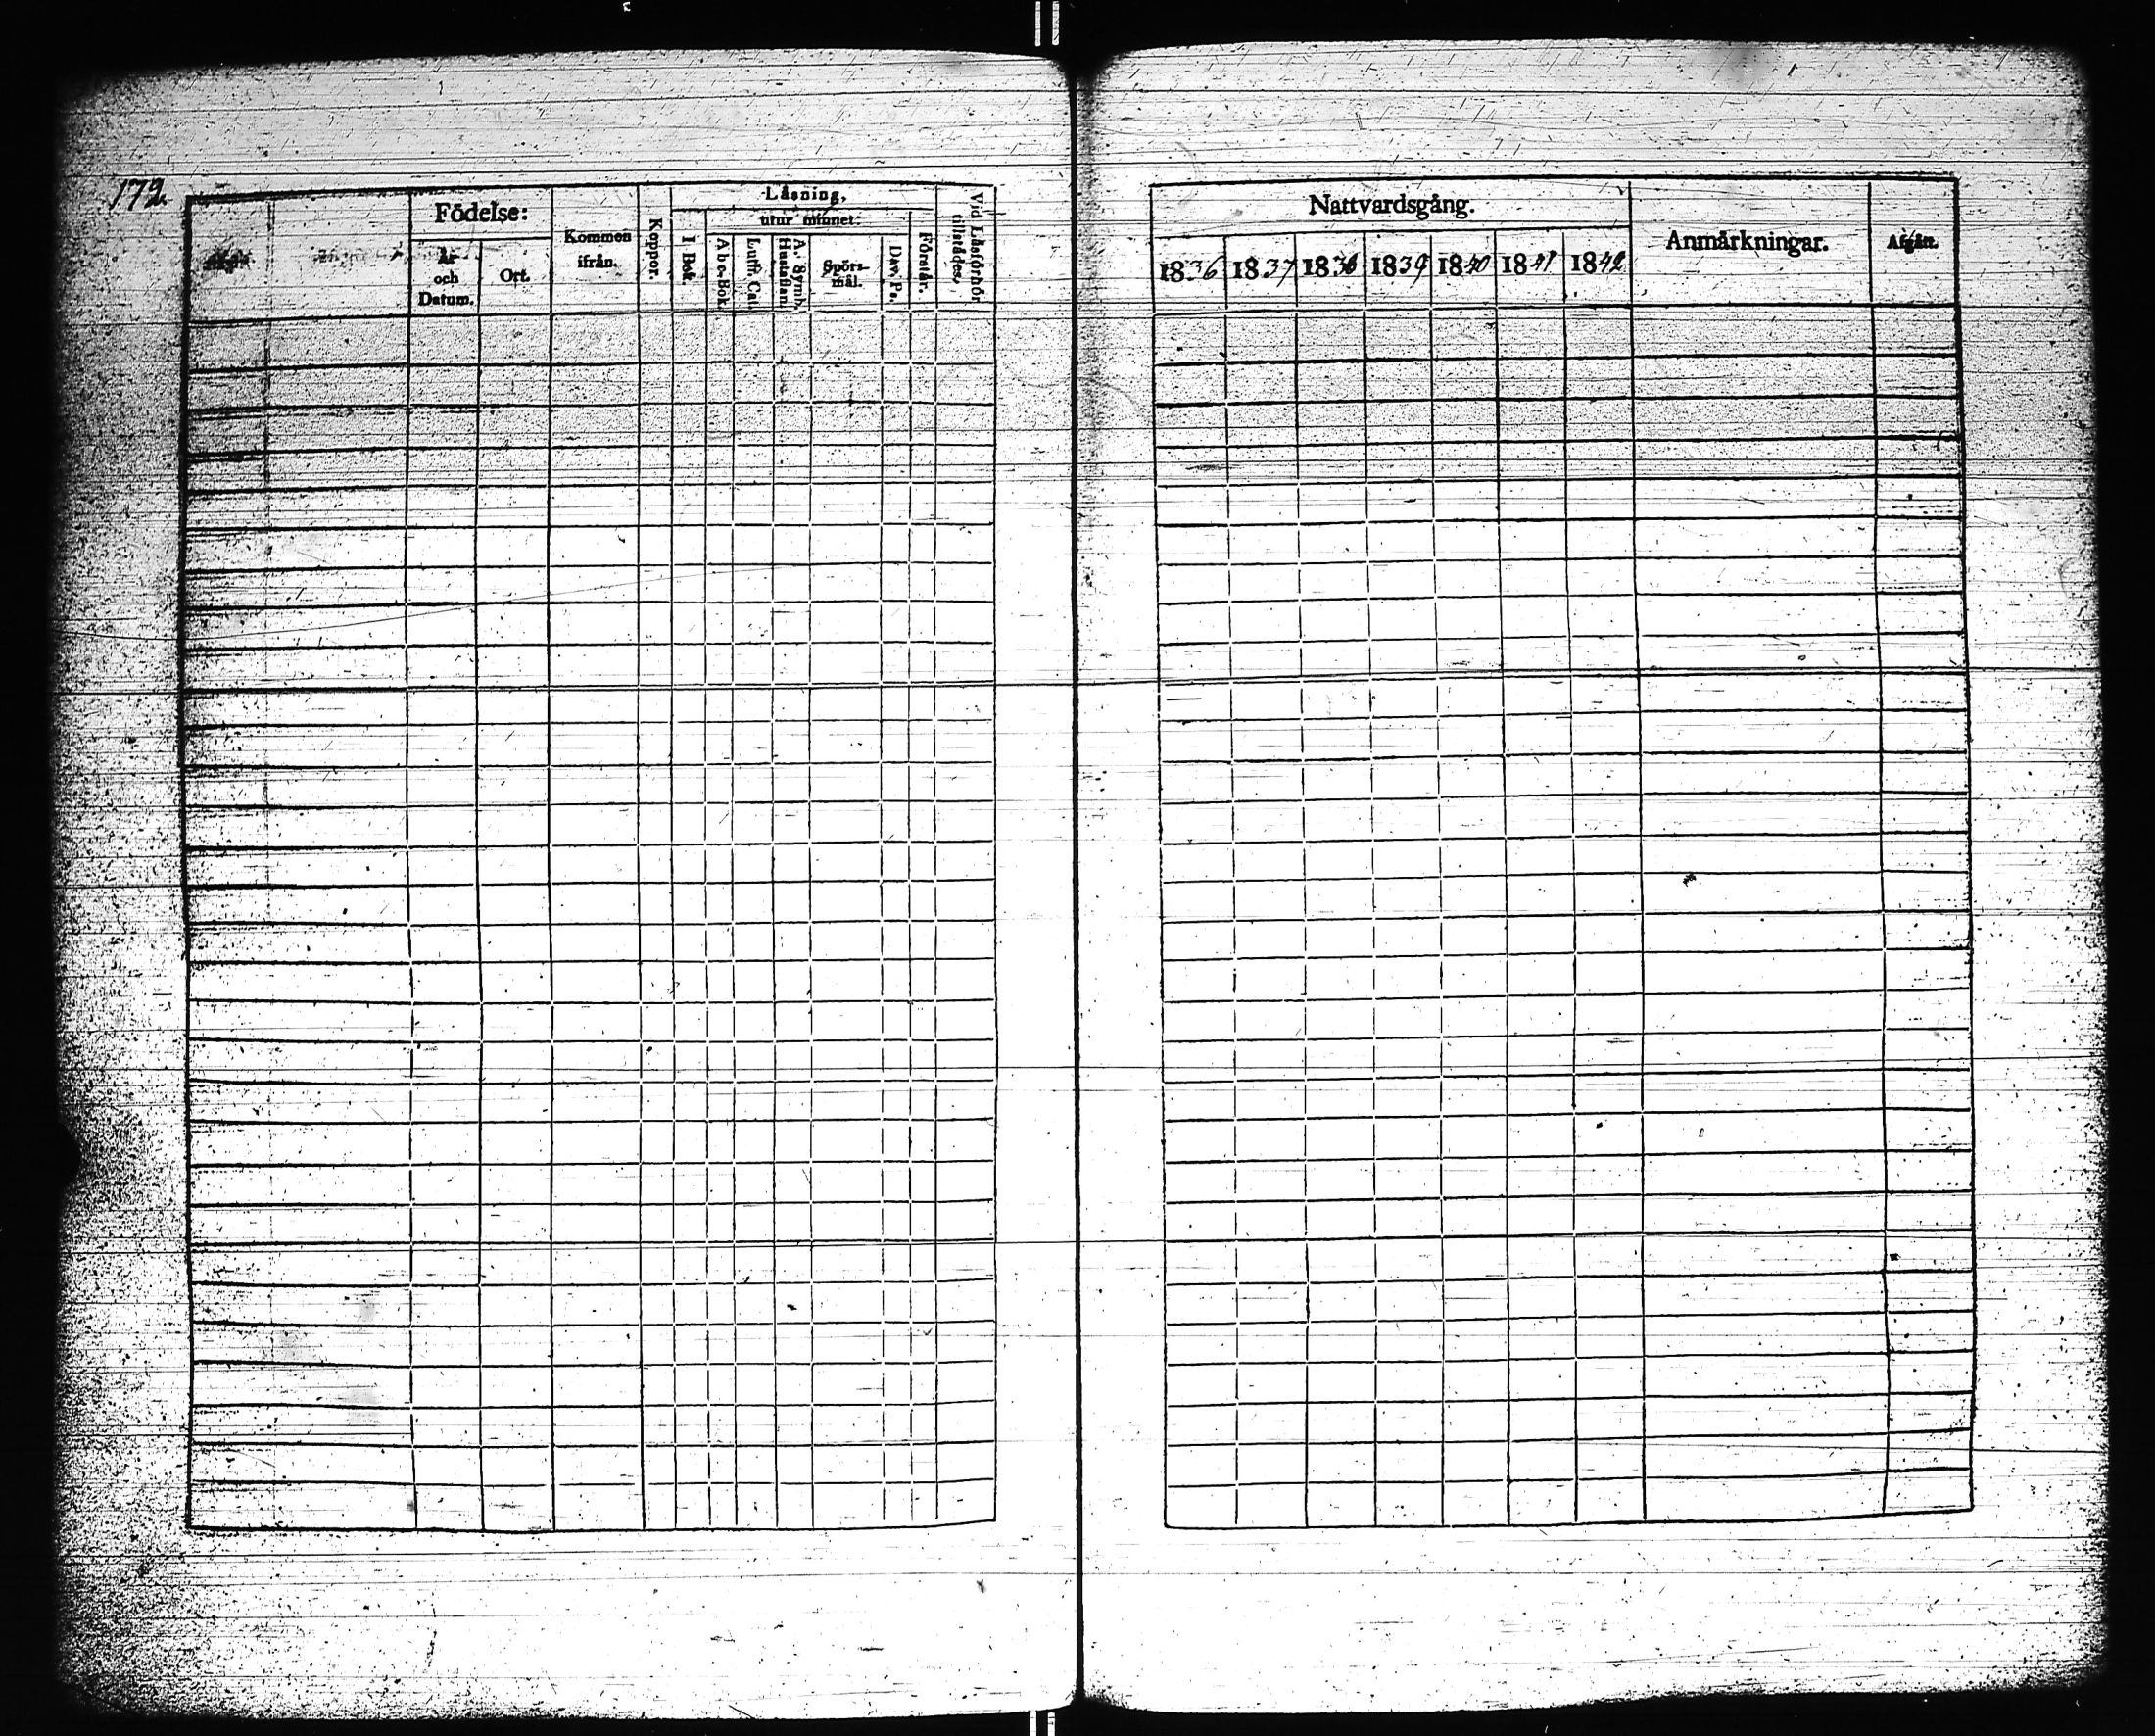 172.
Födelse:
År och Datum.
Ort.
Kommen ifrån.
Koppor.
Läsning,
I Bok.
utur minnet:
Abc-Bok.
Luth. Cat.
A. Symb. Hustaflan.
Spörsmål.
Dav. Ps.
Förstår.
Vid Läsförhör tillstädes.
Nattvardsgång.
1836 1837 1838 1839 1840 1841 1842
Anmärkningar.
Afgått.